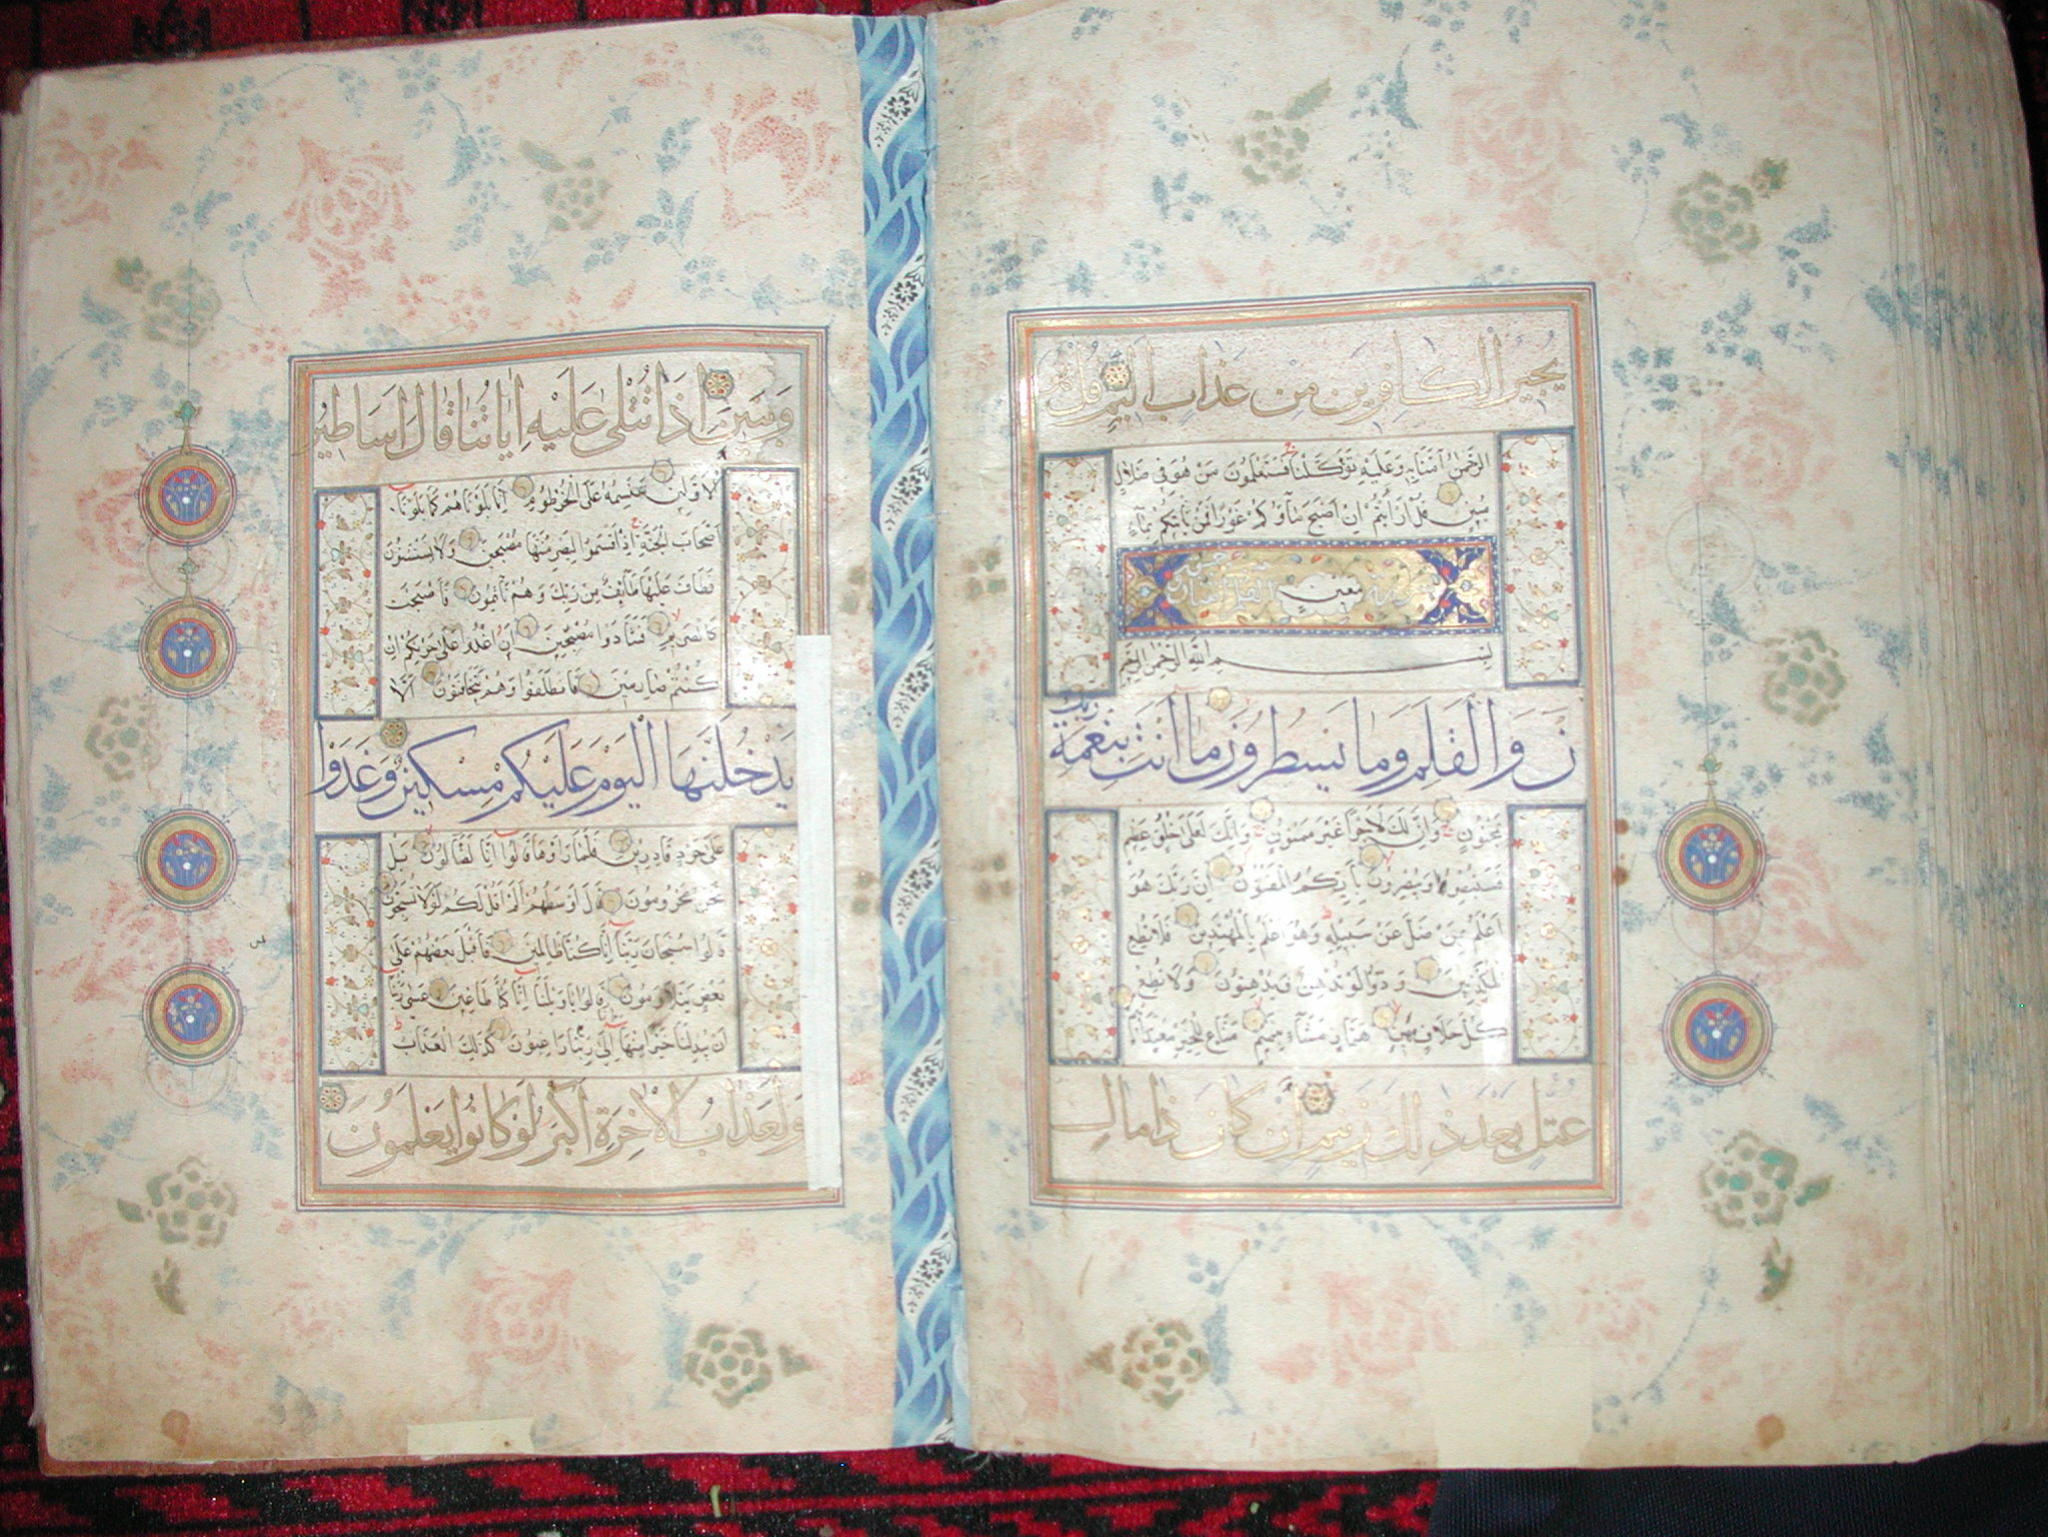 يُجِيرُ الْكَافِرِينَ مِنْ عَذَابٍ أَلِيمٍ قُلْ هُوَ
الرَّحْمٰنُ اٰمَنَّا بِهِ وَعَلَيْهِ تَوَكَّلْنَا فَسَتَعْلَمُونَ مَنْ هُوَ فِي ضَلَالٍ
مُبِينٍ قُلْ اَرَاَيْتُمْ اِنْ اَصْبَحَ مَاۤؤُكُمْ غَوْرًا فَمَنْ يَأْتِيكُمْ بِمَاۤءٍ
مَعِينٍ
بسم الله الرحمن الرحيم
نۤ وَالْقَلَمِ وَمَا يَسْطُرُونَ مَا اَنْتَ بِنِعْمَةِ رَبِّكَ
بِمَجْنُونٍ وَاِنَّ لَكَ لَاَجْرًا غَيْرَ مَمْنُونٍ وَاِنَّكَ لَعَلٰى خُلُقٍ عَظِيمٍ
فَسَتُبْصِرُ وَيُبْصِرُونَ بِاَيِّكُمُ الْمَفْتُونُ اِنَّ رَبَّكَ هُوَ
اَعْلَمُ بِمَنْ ضَلَّ عَنْ سَبِيلِهِ وَهُوَ اَعْلَمُ بِالْمُهْتَدِينَ فَلَا تُطِعِ
الْمُكَذِّبِينَ وَدُّوا لَوْ تُدْهِنُ فَيُدْهِنُونَ وَلَا تُطِعْ
كُلَّ حَلَّافٍ مَهِينٍ هَمَّازٍ مَشَّاۤءٍ بِنَمِيمٍ مَنَّاعٍ لِلْخَيْرِ مُعْتَدٍ اَثِيمٍ
عُتُلٍّ بَعْدَ ذٰلِكَ زَنِيمٍ اَنْ كَانَ ذَا مَالٍ
وَبَنِينَ اِذَا تُتْلٰى عَلَيْهِ اٰيَاتُنَا قَالَ اَسَاطِيرُ
الْاَوَّلِينَ سَنَسِمُهُ عَلَى الْخُرْطُومِ اِنَّا بَلَوْنَاهُمْ كَمَا بَلَوْنَا
اَصْحَابَ الْجَنَّةِ اِذْ اَقْسَمُوا لَيَصْرِمُنَّهَا مُصْبِحِينَ وَلَا يَسْتَثْنُونَ
فَطَافَ عَلَيْهَا طَاۤئِفٌ مِنْ رَبِّكَ وَهُمْ نَاۤئِمُونَ فَاَصْبَحَتْ
كَالصَّرِيمِ فَتَنَادَوْا مُصْبِحِينَ اَنِ اغْدُوا عَلٰى حَرْثِكُمْ اِنْ
كُنْتُمْ صَارِمِينَ فَانْطَلَقُوا وَهُمْ يَتَخَافَتُونَ اَنْ لَا
يَدْخُلَنَّهَا الْيَوْمَ عَلَيْكُمْ مِسْكِينٌ وَغَدَوْا
عَلٰى حَرْدٍ قَادِرِينَ فَلَمَّا رَاَوْهَا قَالُوا اِنَّا لَضَاۤلُّونَ بَلْ
نَحْنُ مَحْرُومُونَ قَالَ اَوْسَطُهُمْ اَلَمْ اَقُلْ لَكُمْ لَوْلَا تُسَبِّحُونَ
قَالُوا سُبْحَانَ رَبِّنَا اِنَّا كُنَّا ظَالِمِينَ فَاَقْبَلَ بَعْضُهُمْ عَلٰى
بَعْضٍ يَتَلَاوَمُونَ قَالُوا يَا وَيْلَنَا اِنَّا كُنَّا طَاغِينَ عَسٰى رَبُّنَا
اَنْ يُبْدِلَنَا خَيْرًا مِنْهَا اِنَّا اِلٰى رَبِّنَا رَاغِبُونَ كَذٰلِكَ الْعَذَابُ
وَلَعَذَابُ الْاٰخِرَةِ اَكْبَرُ لَوْ كَانُوا يَعْلَمُونَ